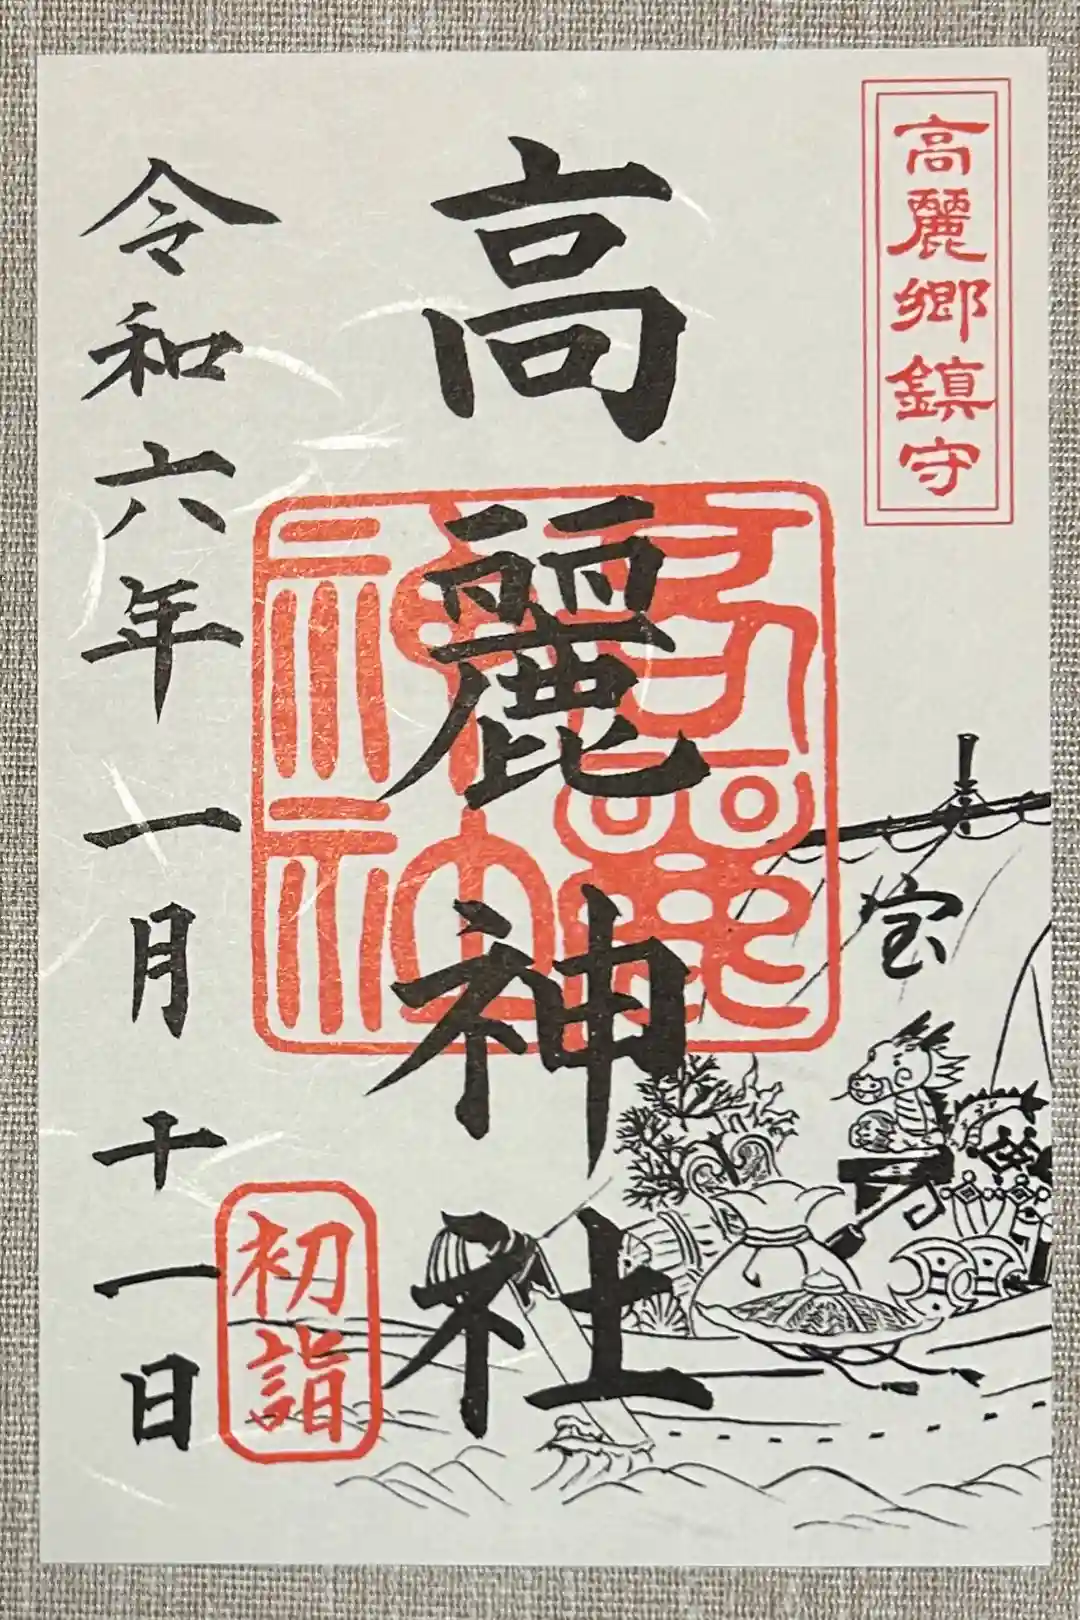 高麗郷鎮守
高麗神社
宝
令和六年一月十一日
初詣
高麗
神社